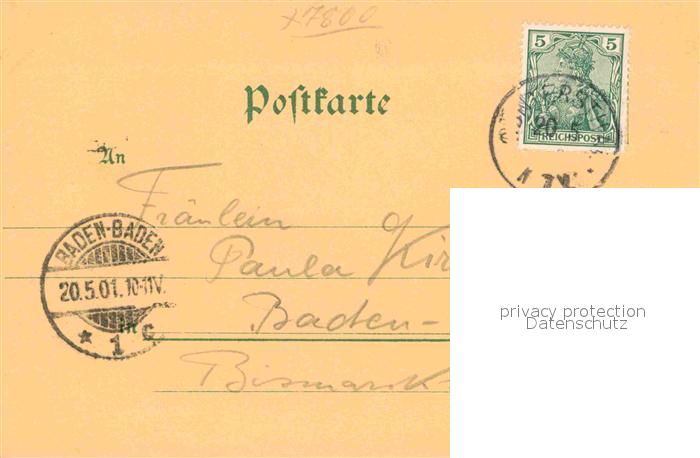 x7800
5 5
REICHSPOST
20 5
Postkarte
An
Fräulein
BADEN-BADEN
Paula
20.5.01. 10-11V.
Baden-
in
* 1 c
privacy protection
Datenschutz